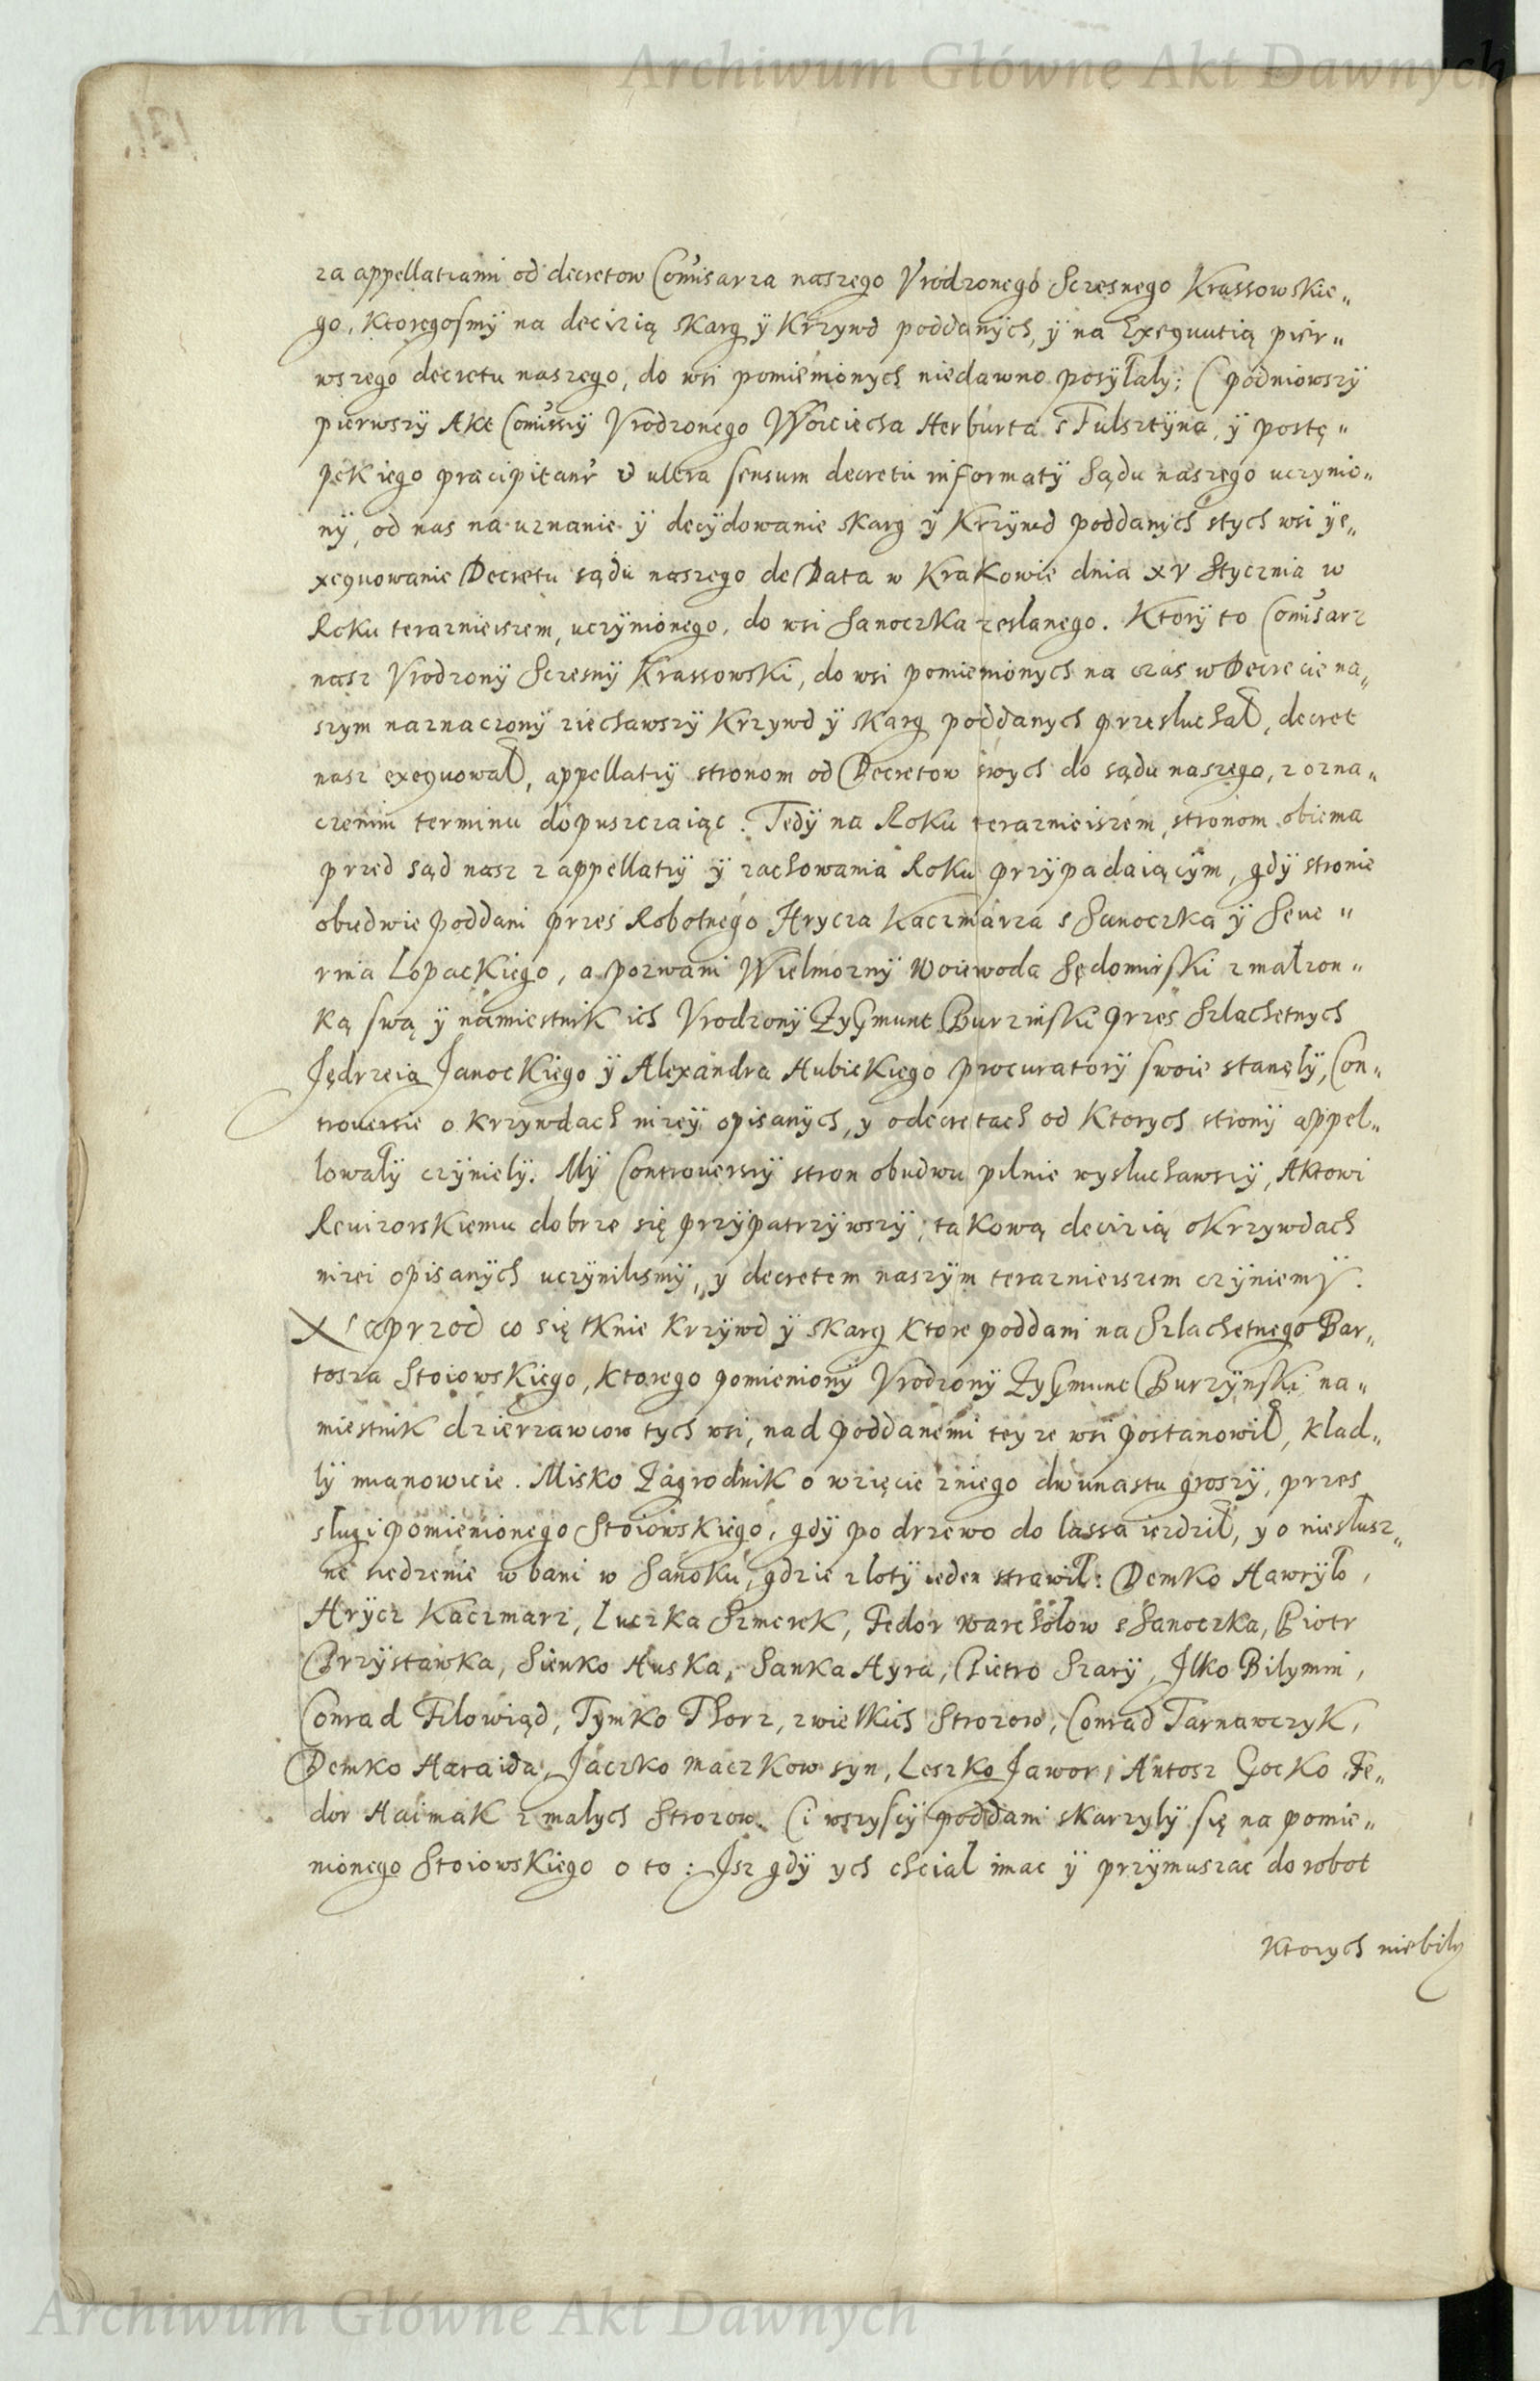 Archiwum Główne Akt Dawnych
za appellatiami od decretow Comisarza naszego Vrodzonego Sczesnego Krassowskie„
go, ktoregosmÿ na decizią skarg ÿ Krzywd poddanÿch, ÿ na Exequutią pier„
wszego decretu naszego, do wsi pomienionych niedawno posÿłalÿ; (podniowszÿ
pierwszÿ Akt Comissiÿ Vrodzonego Woiciecha Herburta s Fulsztÿna, ÿ postę„
pek iego præcipitanter ultra sensum decretu informatÿ Sądu naszego uczynio„
nÿ, od nas na uznanie ÿ decÿdowanie skarg ÿ Krzÿwd poddanÿch stych wsi ÿe„
xequowanie Decretu sądu naszego de Data w Krakowie dnia XV Stycznia w
Roku teraznieiszem, uczÿnionego, do wsi Sanoczka zesłanego. Ktorÿ to Comisarz
nasz Vrodzonÿ Sczesnÿ Krassowski, do wsi pomienionÿch na czas w Decrecie na„
szym naznaczonÿ ziechawszÿ Krzywd ÿ skarg poddanych przesłuchał, decret
nasz exequował, appellatiÿ stronom od Decretow swych do sądu naszego, z ozna„
czenim terminu dopuszczaiąc. Tedÿ na Roku teraznieiszem, stronom obiema
przed sąd nasz z appellatiÿ ÿ zachowania Roku przÿpadaiącÿm, gdÿ stronie
obudwie poddani przes Robotnego Hrycza Kaczmarza s Sanoczka ÿ Seue„
rina Lopackiego, a pozwani Wielmoznÿ Woiewoda Sędomirski z małzon„
ką swą ÿ namiestnik ich Vrodzonÿ Zygmunt Burzinski przes Szlachetnych
Jędrzeia Janockiego ÿ Alexandra Hubickiego procuratorÿ swoie stanęlÿ, Con„
trouersie o krzywdach nizeÿ opisanych, y o decretach od Ktorych stronÿ appel„
lowałÿ czÿnielÿ. Mÿ Controuersiÿ stron obudwu pilnie wysłuchawszÿ, Aktowi
Reuizorskiemu dobrze się przÿpatrzÿwszÿ, takową decizią o Krzywdach
nizei opisanÿch uczÿnilismÿ, y decretem naszÿm terazniejszem czÿniemÿ.
Naprzod co się tknie krzÿwd ÿ skarg ktore poddani na Szlachetnego Bar„
tosza Stoiowskiego, ktorego pomienionÿ Vrodzonÿ Zygmunt Burzÿnski na„
miestnik dzierzawcow tych wsi, nad poddanemi teyze wsi postanowił, klad„
lÿ mianowicie. Misko Zagrodnik o wzięcie z niego dwunastu groszÿ, przes
sługi pomienionego Stoiowskiego, gdÿ po drzewo do lassa iezdził, y o niesłusz„
ne siedzenie w bani w Sanoku, gdzie złotÿ ieden strawił: Demko Hawrÿło,
Hrÿcz Kaczmarz, Luczka Szmerek, Fedor Warchołow s Sanoczka, Piotr
Przÿstawka, Sienko Huska, Sanka Hyra, Pietro Szarÿ, Ilko Bilymin,
Conrad Filowiąd, Tymko Thorz, z wielkich Strozow, Conrad Tarnawczyk,
Demko Haraida, Jaczko Maczkow syn, Leszko Jawor, Antosz Gocko, Fe„
dor Haimak z małych Strozow. Ci wszyscÿ poddani skarzylÿ się na pomie„
nionego Stoiowskiego o to: Isz gdÿ ych chciał imac ÿ przÿmuszac do robot
Ktorych niebily
Archiwum Główne Akt Dawnych